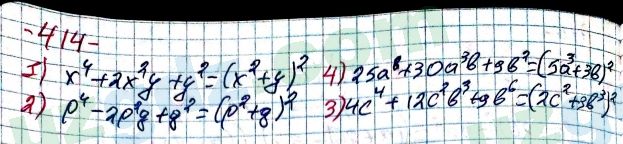 -414-
1) x⁴+2x²y+y²=(x²+y)² 4) 25a⁶+30a³b+9b²=(5a³+3b)²
2) p⁴-2p²g+g²=(p²+g)² 3) 4c⁴+12c²b³+9b⁶=(2c²+3b³)²